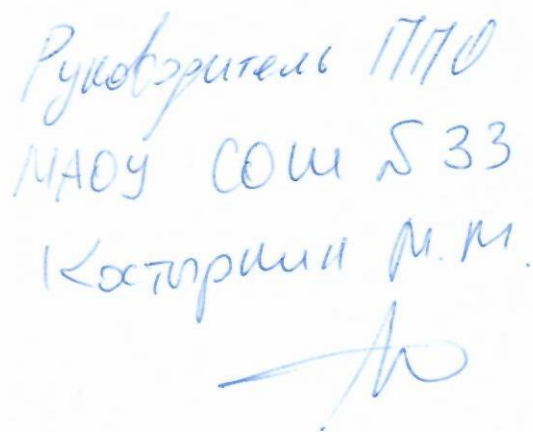 Руководитель ППО
МАОУ СОШ № 33
Костыркин М.М.